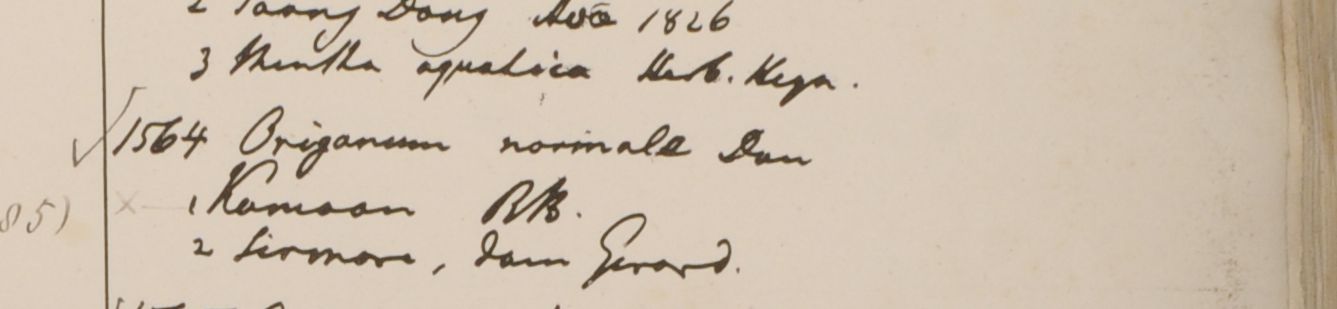 2 Toong Dong Ava 1826
3 Mentha aquatica Herb. Heyn.
1564 Origanum normale Don
85) × 1 Kamaon RB.
2 Sirmore, Dam Gerard.